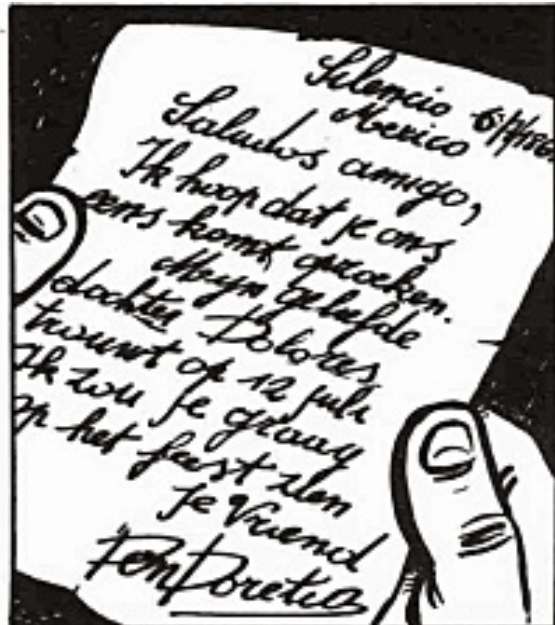 Silencio
Mexico 6/7/186
Saludos amigo,
Ik hoop dat je ons
eens komt opzoeken.
Mijn geliefde
dochter Dolores
trouwt op 12 juli
Ik zou je graag
op het feest zien
Je vriend